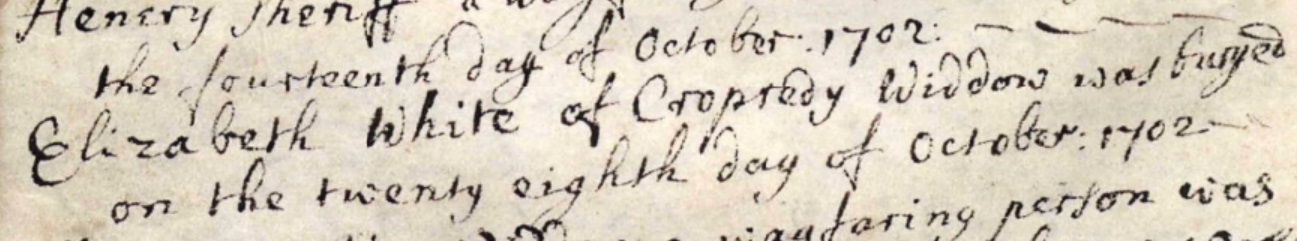 Henery Sheriff a
the fourteenth day of October: 1702:
Elizabeth White of Cropredy Widdow was buryed
on the twenty eighth day of October: 1702
wayfaring person was